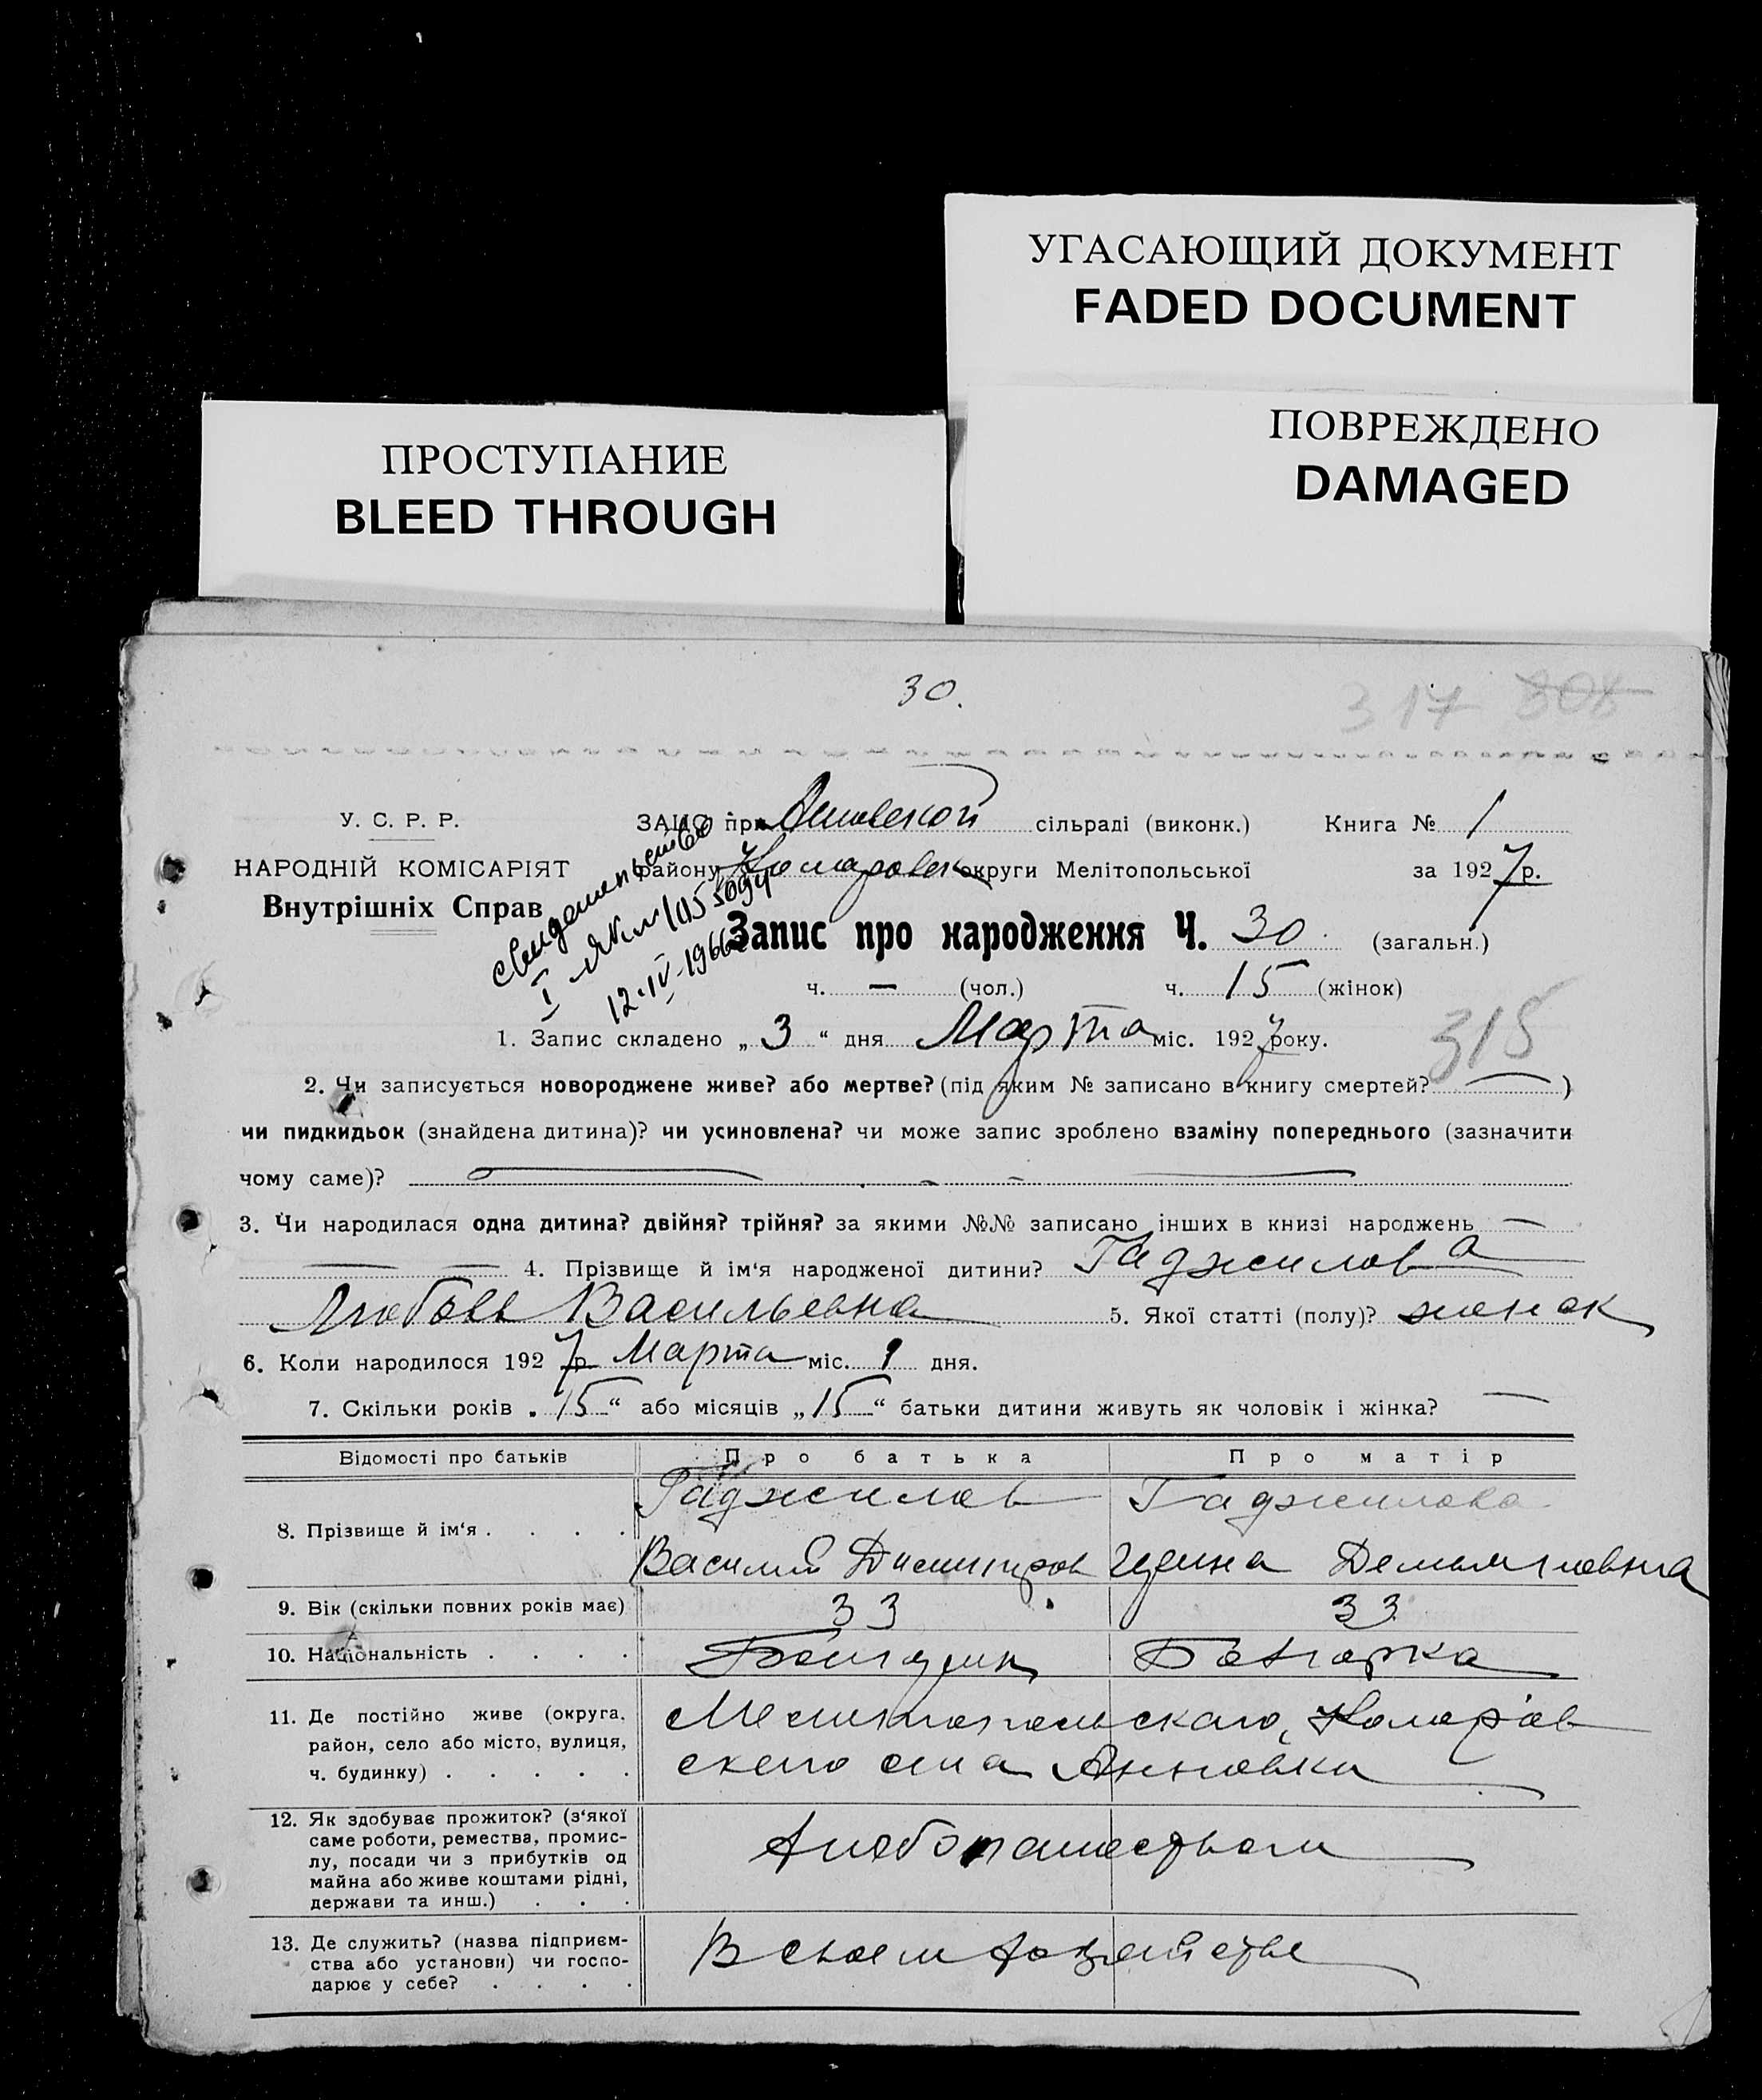 УГАСАЮЩИЙ ДОКУМЕНТ
FADED DOCUMENT
ПРОСТУПАНИЕ
BLEED THROUGH
ПОВРЕЖДЕНО
DAMAGED
30.
317 308
У. С. Р. Р.
НАРОДНІЙ КОМІСАРІЯТ
Внутрішніх Справ
ЗАЦС при сільраді (виконк.) Книга № 1
району округи Мелітопольської за 1927 р.
Свидетельство
12.IV-1966
Запис про народження Ч. 30. (загальн.)
ч. — (чол.) ч. 15 (жінок)
1. Запис складено „ 3 “ дня Марта міс. 1927 року.
315
2. Чи записується новороджене живе? або мертве? (під яким № записано в книгу смертей? — )
чи пидкидьок (знайдена дитина)? чи усиновлена? чи може запис зроблено взаміну попереднього (зазначити
чому саме)? —
3. Чи народилася одна дитина? двійня? трійня? за якими №№ записано інших в книзі народжень —
— — 4. Прізвище й ім'я народженої дитини? Гаджилова
Любовь Васильевна 5. Якої статті (полу)? женск
6. Коли народилося 1927 р. Марта міс. 1 дня.
7. Скільки років „ 15 “ або місяців „ 15 “ батьки дитини живуть як чоловік і жінка? —
Відомості про батьків Про батька Про матір
8. Прізвище й ім'я . . . .
Гаджилов Гаджилова
Василий Димитров Ирина Демьяновна
9. Вік (скільки повних років має) 33 33
10. Національність . . . . Болгарин Болгарка
11. Де постійно живе (округа,
район, село або місто, вулиця,
ч. будинку) . . . . .
Мелитопольскаго, Комаров
скаго села Анновки
12. Як здобуває прожиток? (з'якої
саме роботи, ремества, промис-
лу, посади чи з прибутків од
майна або живе коштами рідні,
держави та инш.) . . .
Хлебопашеством
13. Де служить? (назва підприєм-
ства або установи) чи госпо-
дарює у себе? . . . .
В своем хозяйстве